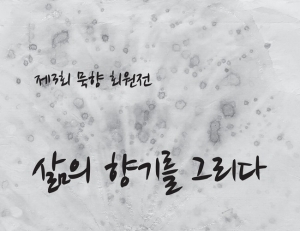 제3회 묵향 회원전
삶의 향기를 그리다